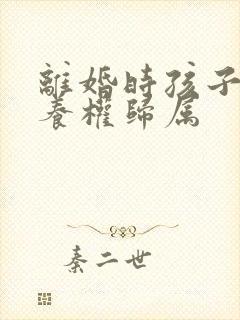 離婚時孩子
養權歸属
秦二世